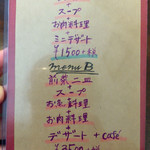 +
スープ
+
お肉料理
+
ミニデザート
¥1500+税
menu B
前菜二皿
+
スープ
+
お魚料理
+
お肉料理
+
デザート + café
¥3500+税